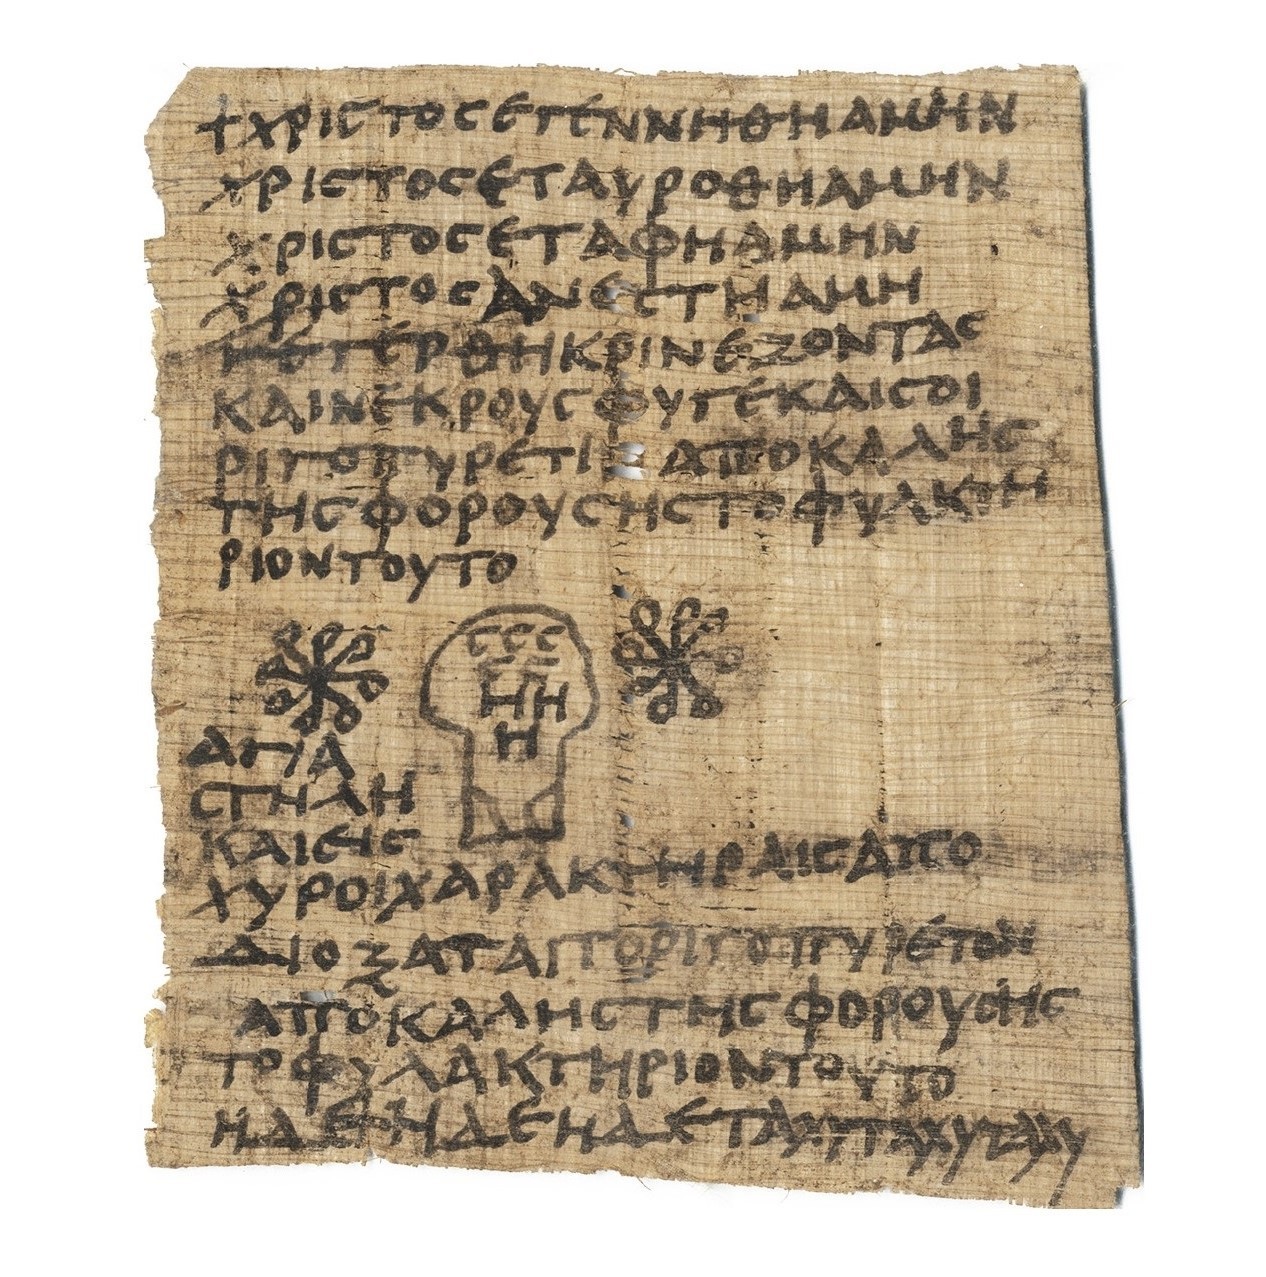 + χριστος εγεννηθη αμην
χριστος εσταυροθη αμην
χριστος εταφη αμην
χριστος ανεστη αμη
κεγερθη κρινε ζοντας
και νεκρους φυγε και σοι
ριγοπυρετι απο καλης
της φορουσης το φυλακτη
ριον τουτο
ccc
ηη
η
αγια
στηλη
και εις
χυροι χαρακτηραις απο
διοξατα το ριγοπυρετον
απο καλης της φορουσης
το φυλακτηριον τουτο
ηδε ηδε ηδε ταχυ ταχυ ταχυ